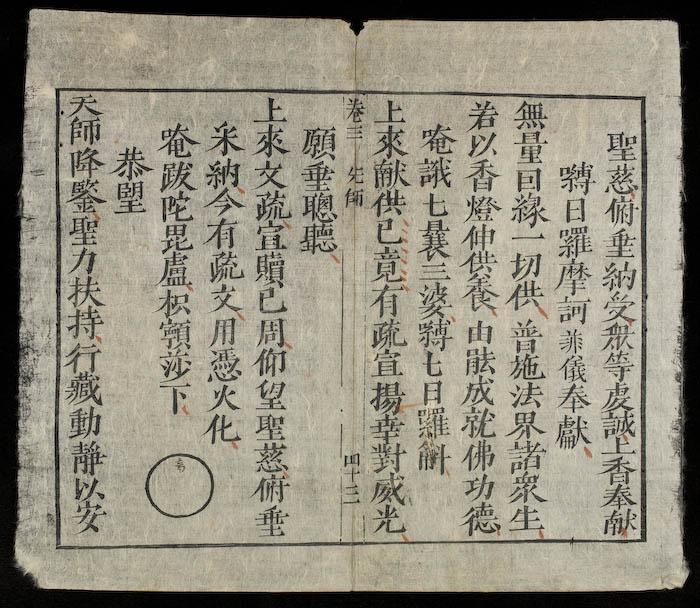 聖慈俯垂納受衆等虔誠上香奉献
嚩日羅摩訶菲儀奉獻
無量因緣一切供普施法界諸衆生
若以香燈伸供養由能成就佛功德
唵誐七曩三婆嚩七日羅斛
上來献供已竟有疏宣揚幸對威光
卷三 先師 四十三
願垂聰聽
上來文疏宣贖已周仰望聖慈俯垂
采納今有疏文用憑火化
唵跋陀毘盧枳䫂莎下
恭望
天師降鑒聖力扶持行藏動靜以安